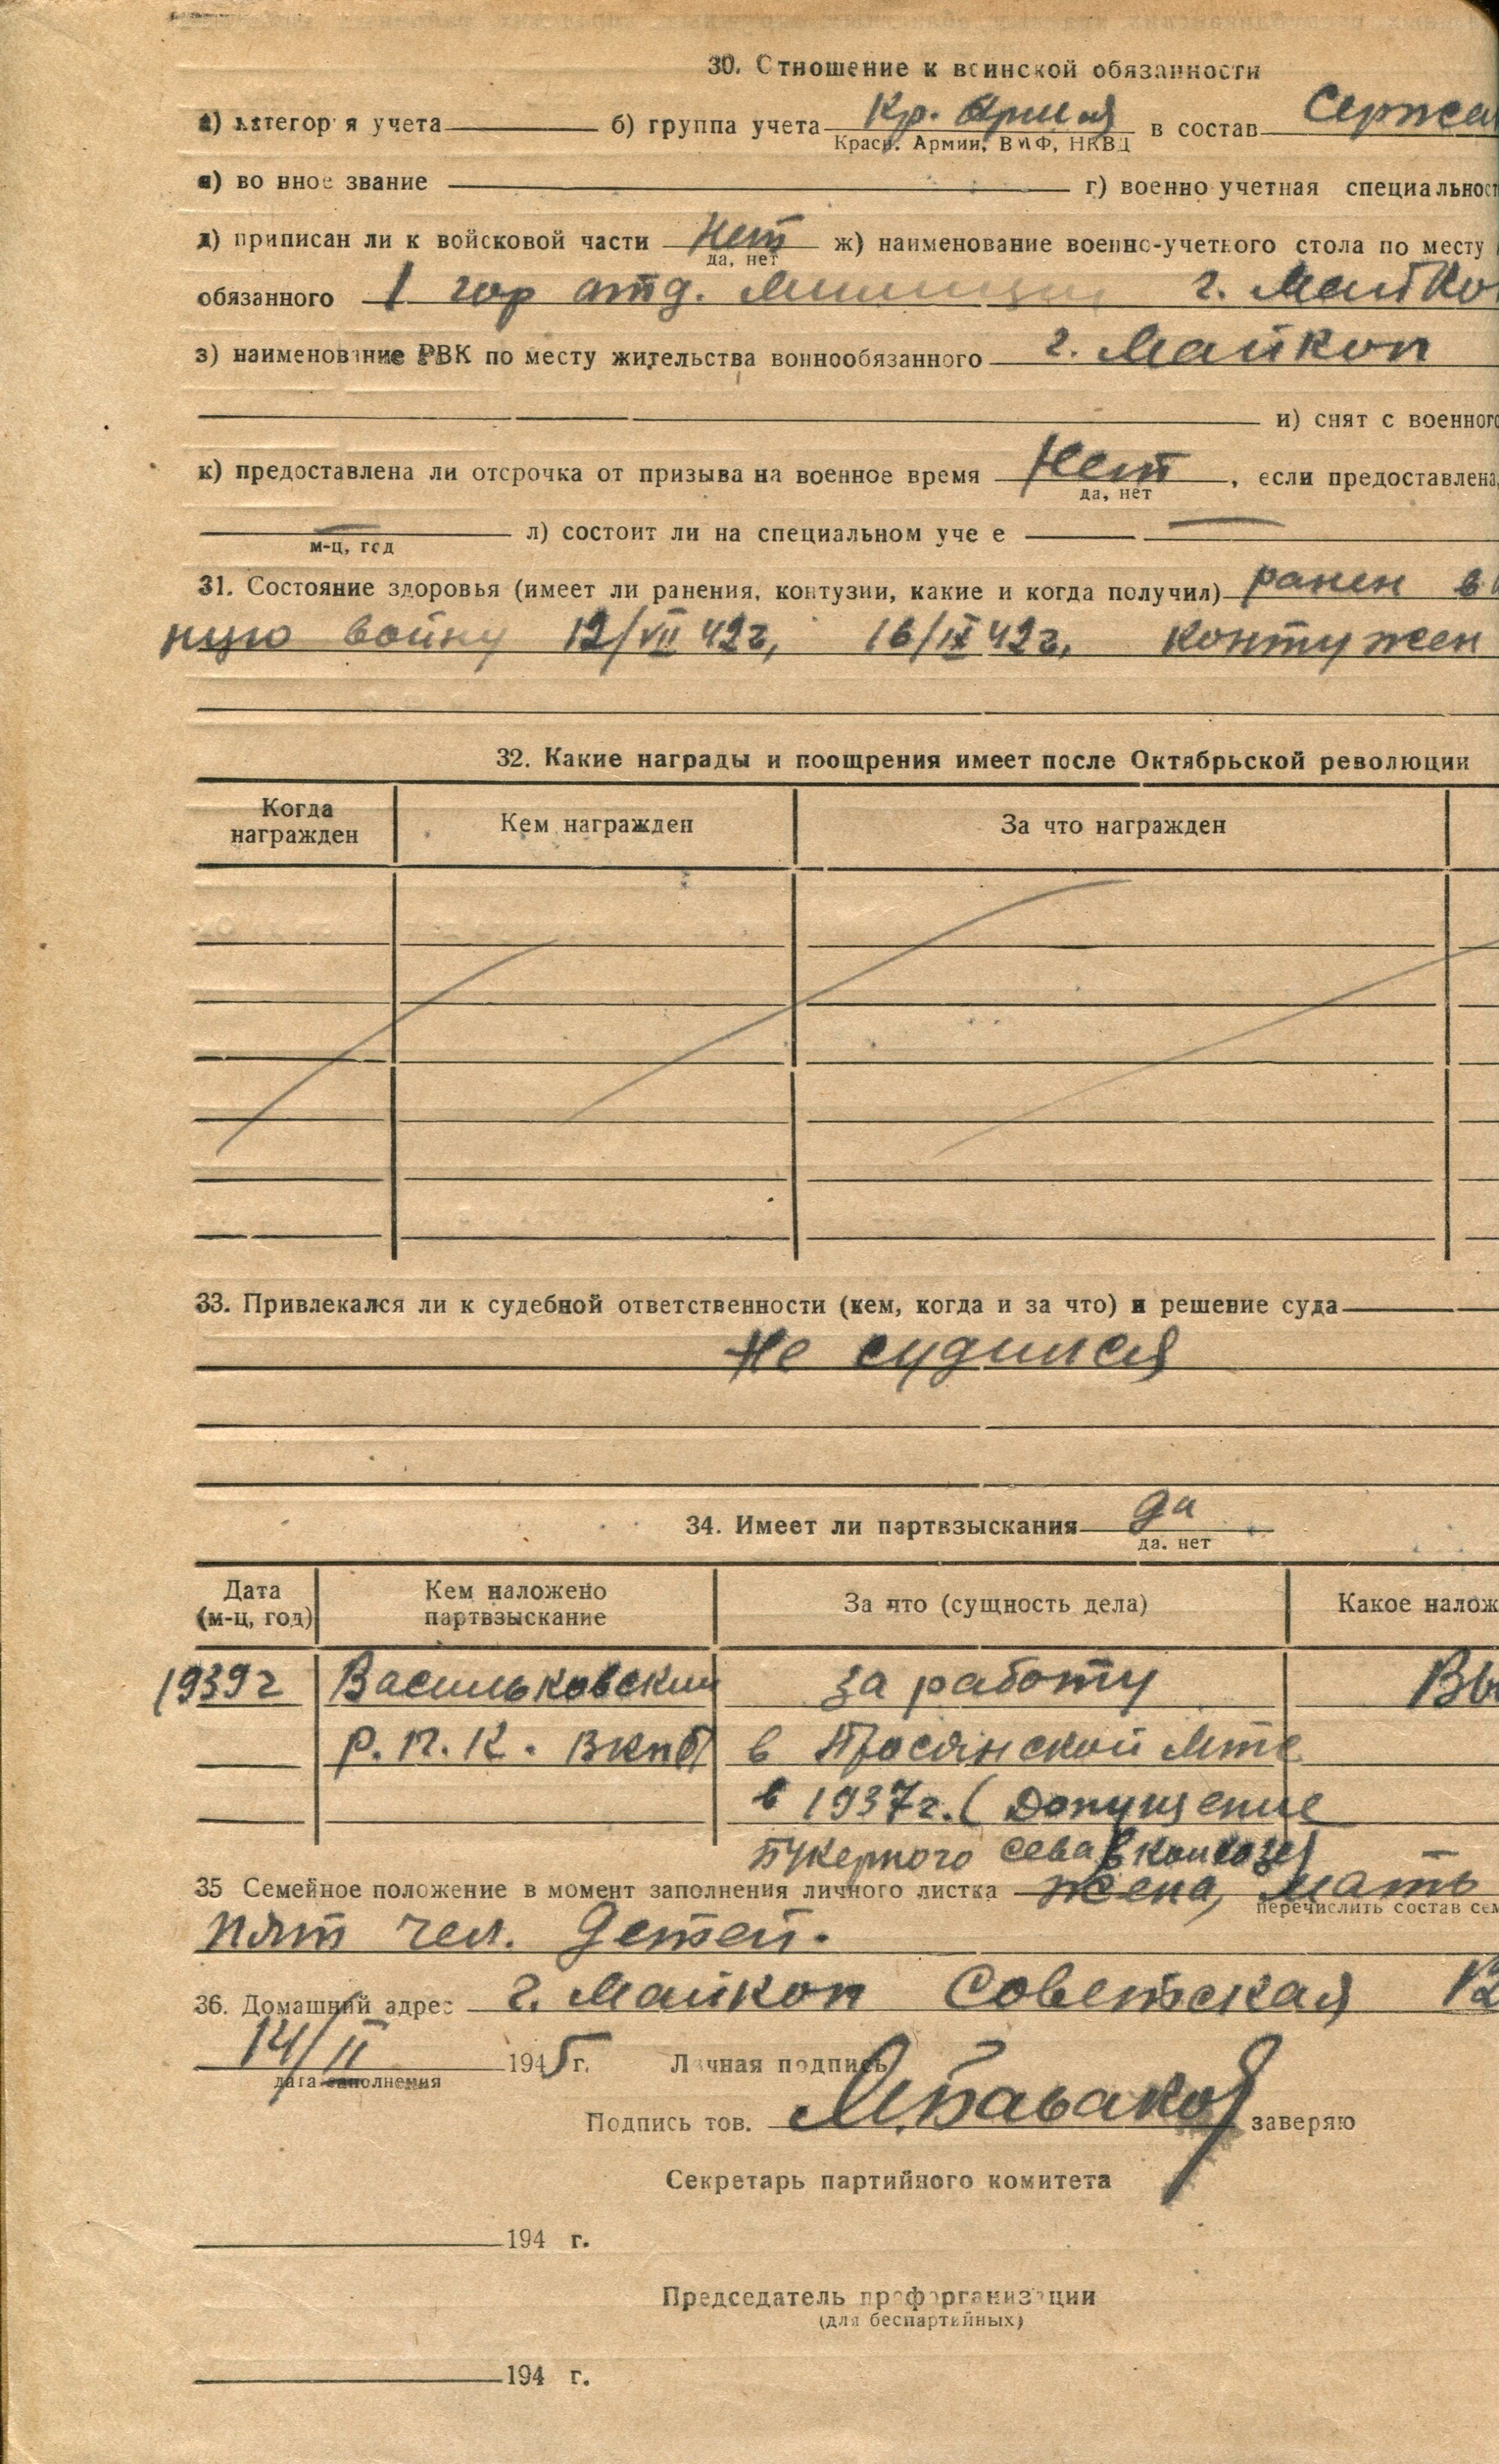 30. Отношение к воинской обязанности
а) категория учета б) группа учета Кр. Армия в состав Сержа
Красн. Армии, ВМФ, НКВД
в) во нное звание г) военно учетная специальност
д) приписан ли к войсковой части Нет ж) наименование военно-учетного стола по месту
да, нет
обязанного 1 гор отд. Милиции г. Майко
з) наименование РВК по месту жительства воннообязанного г. Майкоп
и) снят с военног
к) предоставлена ли отсрочка от призыва на военное время Нет, если предоставлена
да, нет
л) состоит ли на специальном уче е
м-ц, год
31. Состояние здоровья (имеет ли ранения, контузии, какие и когда получил) ранен в
ную войну 12/VII 42г, 16/IX 42г. контужен
32. Какие награды и поощрения имеет после Октябрьской революции
Когда награжден Кем награжден За что награжден
33. Привлекался ли к судебной ответственности (кем, когда и за что) и решение суда
Не судился
34. Имеет ли партвзыскания да
да. нет
Дата (м-ц, год) Кем наложено партвзыскание За что (сущность дела) Какое налож
1939г Васильковский за работу Вы
Р.П.К. ВКПб в Просянской Мтс
в 1937г. (Допущение
Букерного сева в колхозе)
35 Семейное положение в момент заполнения личного листка жена, мать
перечислить состав сем
пят чел. Детей.
36. Домашний адрес г. Майкоп Советская
14/II 1945г. Личная подпись
дата заполнения
Подпись тов. заверяю
Секретарь партийного комитета
194 г.
Председатель профорганизации
(для беспартийных)
194 г.